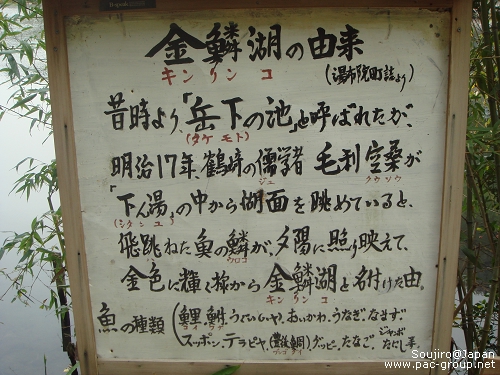 金鱗湖の由来
キンリンコ
(湯布院町誌より)
昔時より、「岳下の池」と呼ばれたが、
(タケモト)
明治17年、鶴崎の儒学者 毛利空桑が
ジュ クウソウ
「下ん湯」の中から湖面を眺めていると、
(シタンユ)
飛跳ねた魚の鱗が、夕陽に照り映えて、
ウロコ
金色に輝く様から金鱗湖と名付けた由。
キンリンコ
魚の種類 (鯉、鮒、うぐい、ハヤ、おいかわ、うなぎ、なまず
スッポン、テラピヤ、(豊後鯛)グッピー、たなご、たにし等。
ブンゴダイ
Soujiro@Japan
www.pac-group.net